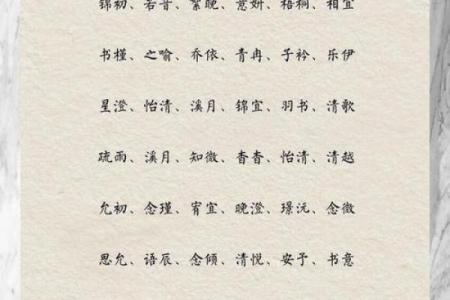 锦初、若音、繁晚、意妍、梧桐、相宜
书槿、之喻、乔依、青冉、子衿、乐伊
星澄、怡清、溪月、锦宜、羽书、清歌
疏雨、溪月、知微、杳杳、怡清、清越
允初、念瑾、宥宜、晚澄、璟沅、念微
思允、语辰、念倾、清悦、安予、书意